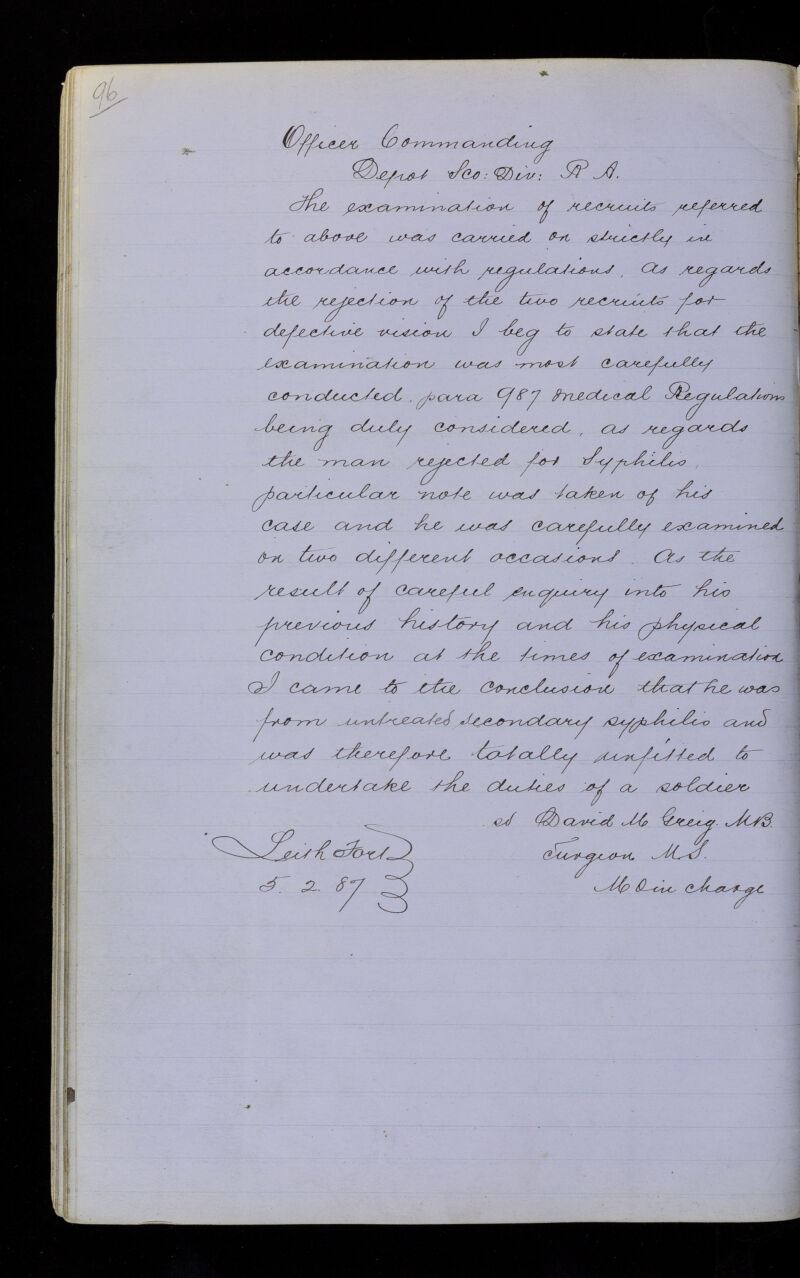 96
Officer Commanding
Depot Sco: Div: R A.
The examination of recruits referred
to above was carried on strictly in
accordance with regulations. As regards
the rejection of the two recruits for
defective vision I beg to state that the
examination was most carefully
conducted. para 987 Medical Regulations
being duly considered, as regards
the man rejected for Syphilis,
particular note was taken of his
case and he was carefully examined
on two different occasions. As the
result of careful enquiry into his
previous history and his physical
condition at the times of examination
I came to the conclusion that he was
from untreated secondary syphilis and
was therefore totally unfitted to
undertake the duties of a soldier
sd David M Greig. MB.
Surgeon M S.
Leith Fort
5. 2. 87
M O in charge